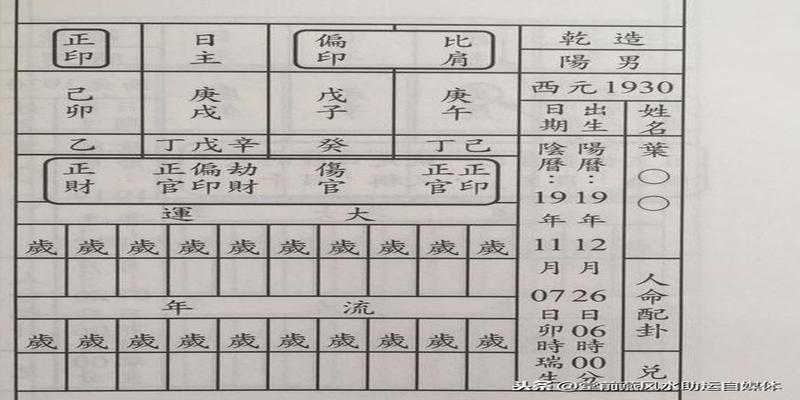 乾造
陽男
西元1930
姓名
葉○○
人命配卦
兌
出生日期
陽曆:19年12月26日06時00分
陰曆:19年11月07日卯時瑞生
比肩
偏印
日主
正印
庚午
戊子
庚戌
己卯
丁己
癸
丁戊辛
乙
正印
正官
傷官
劫財
偏印
正官
正財
大運
歲 歲 歲 歲 歲 歲 歲 歲 歲 歲
流年
歲 歲 歲 歲 歲 歲 歲 歲 歲 歲
头条 @ 风水助运自媒体